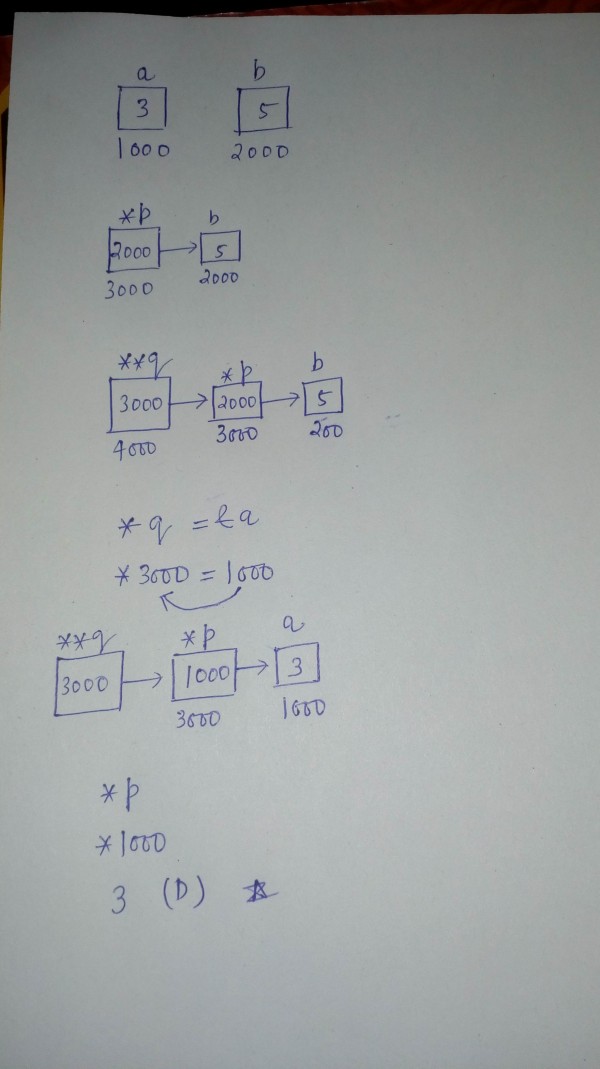 a b
3 5
1000 2000
*p b
2000 5
3000 2000
**q *p b
3000 2000 5
4000 3000 200
*q = &a
*3000 = 1000
**q *p a
3000 1000 3
3000 1000
*p
*1000
3 (D)